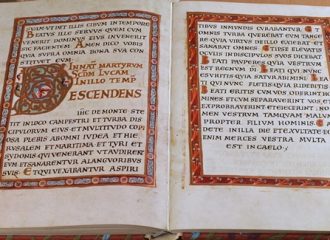 ILLIS CIBUM IN TEMPORE
BEATUS ILLE SERVUS QUEM CUM
VENERIT DOMINUS EIUS INVENERIT
SIC FACIENTEM AMEN DICO VOBIS
QUIA SUPER OMNIA BONA SUA CON
STITUET
IN NAT MARTYRUM
SCDM LUCAM
IN ILLO TEMP
DESCENDENS
IHC DE MONTE STE
TIT IN LOCO CAMPESTRI ET TURBA DIS
CIPULORUM EIUS ET MULTITUDO COPI
OSA PLEBIS AB OMNI IUDEA ET HIERU
SALEM ET MARITIMA ET TYRI ET
SYDONIS QUI VENERANT UT AUDIRENT
EUM ET SANARENTUR A LANGUORIBUS
SUIS ET QUI VEXABANTUR A SPIRI
TIBUS INMUNDIS CURABANTUR ET
OMNIS TURBA QUEREBAT EUM TANGE
RE QUIA VIRTUS DE ILLO EXIEBAT ET
SANABAT OMNES ET IPSE ELEVATIS
OCULIS IN DISCIPULOS SUOS DICEBAT
BEATI PAUPERES QUIA VESTRUM
EST REGNUM DI BEATI QUI NUNC
ESURITIS QUIA SATURABIMINI BEA
TI QUI NUNC FLETIS QUIA RIDEBITIS
BEATI ERITIS CUM VOS ODERINT HO
MINES ET CUM SEPARAVERINT VOS ET
EXPROBRAVERINT ET EIECERINT NO
MEN VESTRUM TAMQUAM MALUM
PROPTER FILIUM HOMINIS GAU
DETE IN ILLA DIE ET EXULTATE ECCE
ENIM MERCES VESTRA MULTA
EST IN CAELO